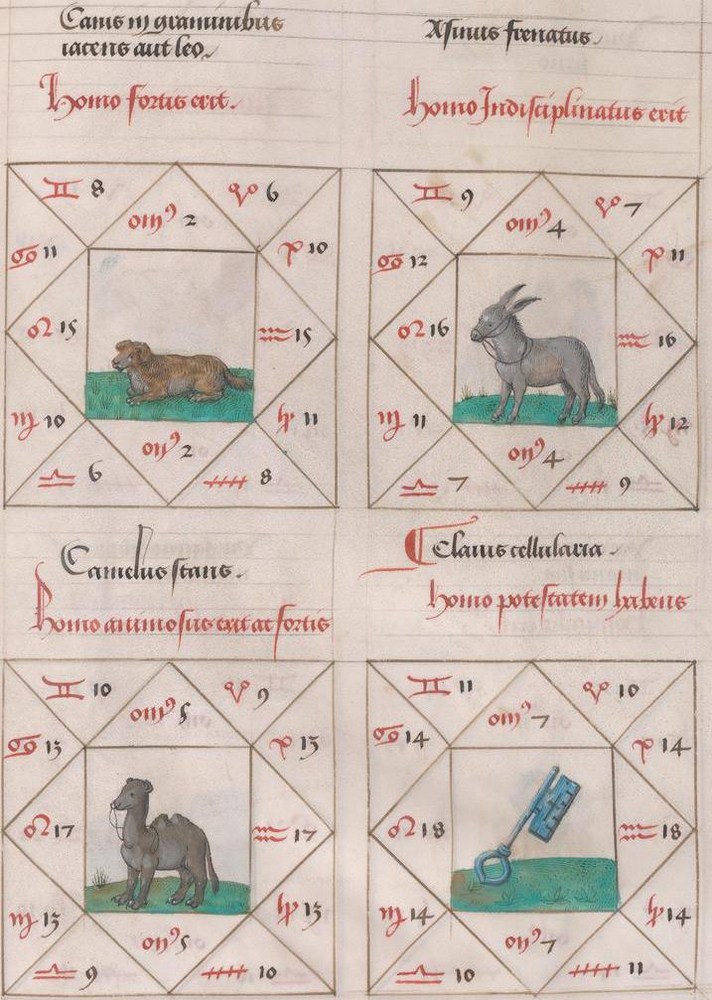 Canis in graminibus
iacens aut leo.
Homo fortis erit.
♊ 8
oriꝰ 2
♈ 6
♋ 11
♓ 10
♌ 15
♒ 15
♍ 10
♑ 11
♎ 6
oriꝰ 2
8
Asinus frenatus.
Homo Indisciplinatus erit
♊ 9
4
♈ 7
♋ 12
11
♌ 16
♒ 16
♍ 11
♑ 12
♎ 7
4
9
Camelus stans.
Homo animosus erit ac fortis
♊ 10
5
♈ 9
♋ 13
13
♌ 17
♒ 17
♍ 13
♑ 13
♎ 9
5
10
Clauis cellularia.
Homo potestatem habens
♊ 11
7
♈ 10
♋ 14
14
♌ 18
♒ 18
♍ 14
♑ 14
♎ 10
7
11